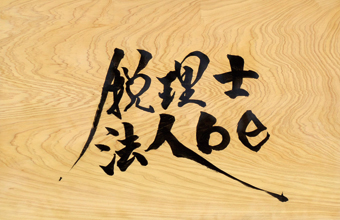 税理士
法人be